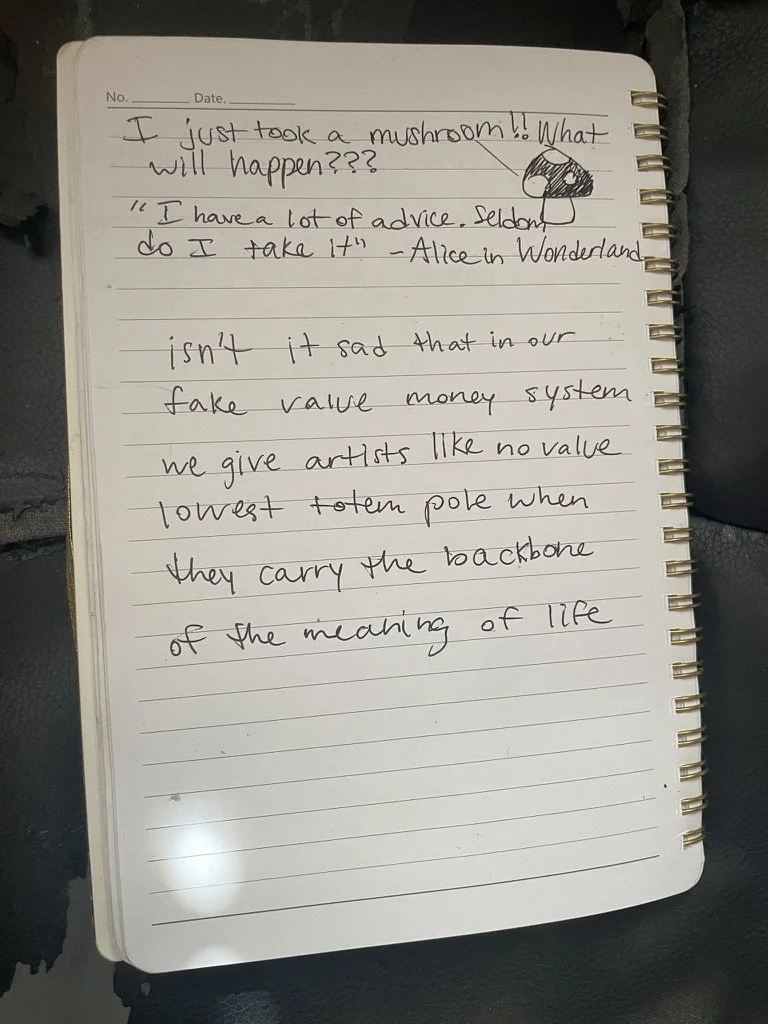 No. Date.
I just took a mushroom!! What
will happen???
"I have a lot of advice. Seldom
do I take it" - Alice in Wonderland
isn't it sad that in our
fake value money system
we give artists like no value
lowest totem pole when
they carry the backbone
of the meaning of life